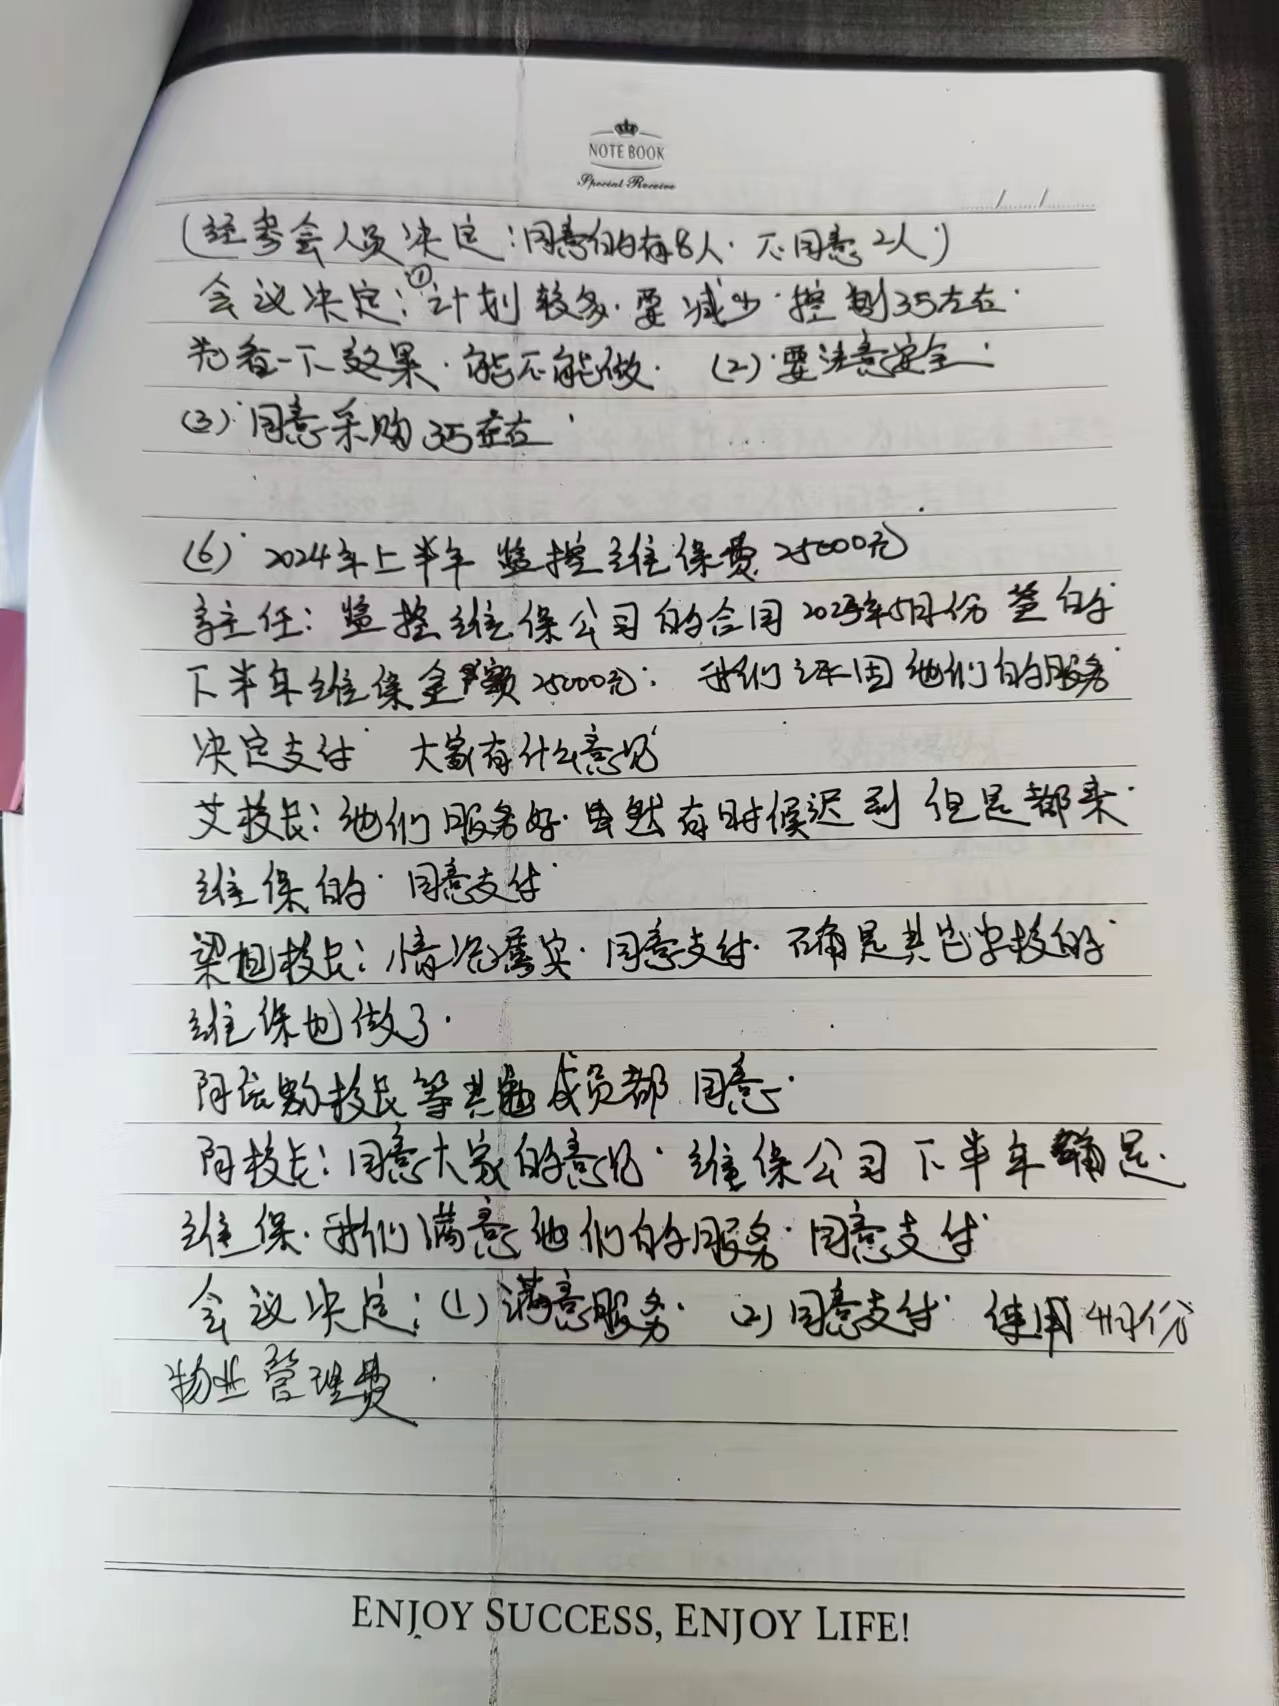 NOTE BOOK
Special Receive
(经参会人员决定:同意的有8人. 不同意2人)
会议决定:①计划较多.要减少.控制35左右.
先看一下效果.能不能做. (2)要注意安全.
(3)同意采购35左右.
(6) 2024年上半年 监控维保费25000元
主任: 监控维保公司的合同2023年5月份签的
下半年维保金额25000元: 我们评固他们的服务
决定支付 大家有什么意见
艾校长: 他们服务好.虽然有时候迟到 但是都来.
维保的. 同意支付.
梁旭校长: 情况属实.同意支付.不确是其它学校的
维保也做了.
阿依努校长等其他成员都 同意.
阿校长: 同意大家的意见. 维保公司下半年确是.
维保.我们满意他们的服务.同意支付
会议决定: (1)满意服务. (2)同意支付. 使用4月份
物业管理费.
ENJOY SUCCESS, ENJOY LIFE!